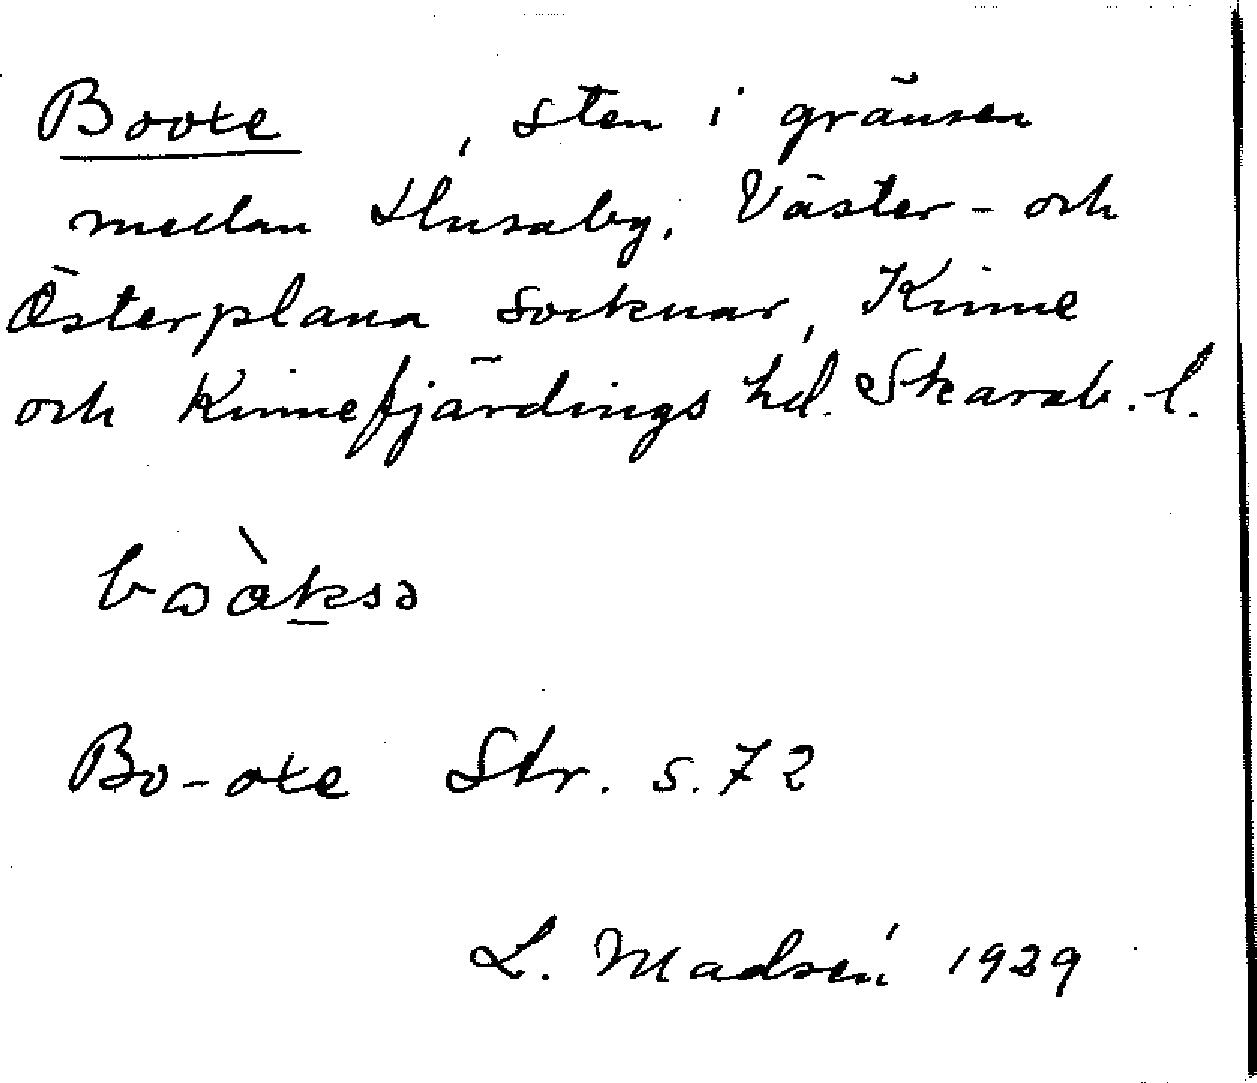 Booxe, sten i gränsen
medan Husaby, Väster- och
Österplana socknar, Kinne
och Kinnefjärdings hd. Skarab. l.
Bo-oxe Str. s. 72
L. Madsén 1929